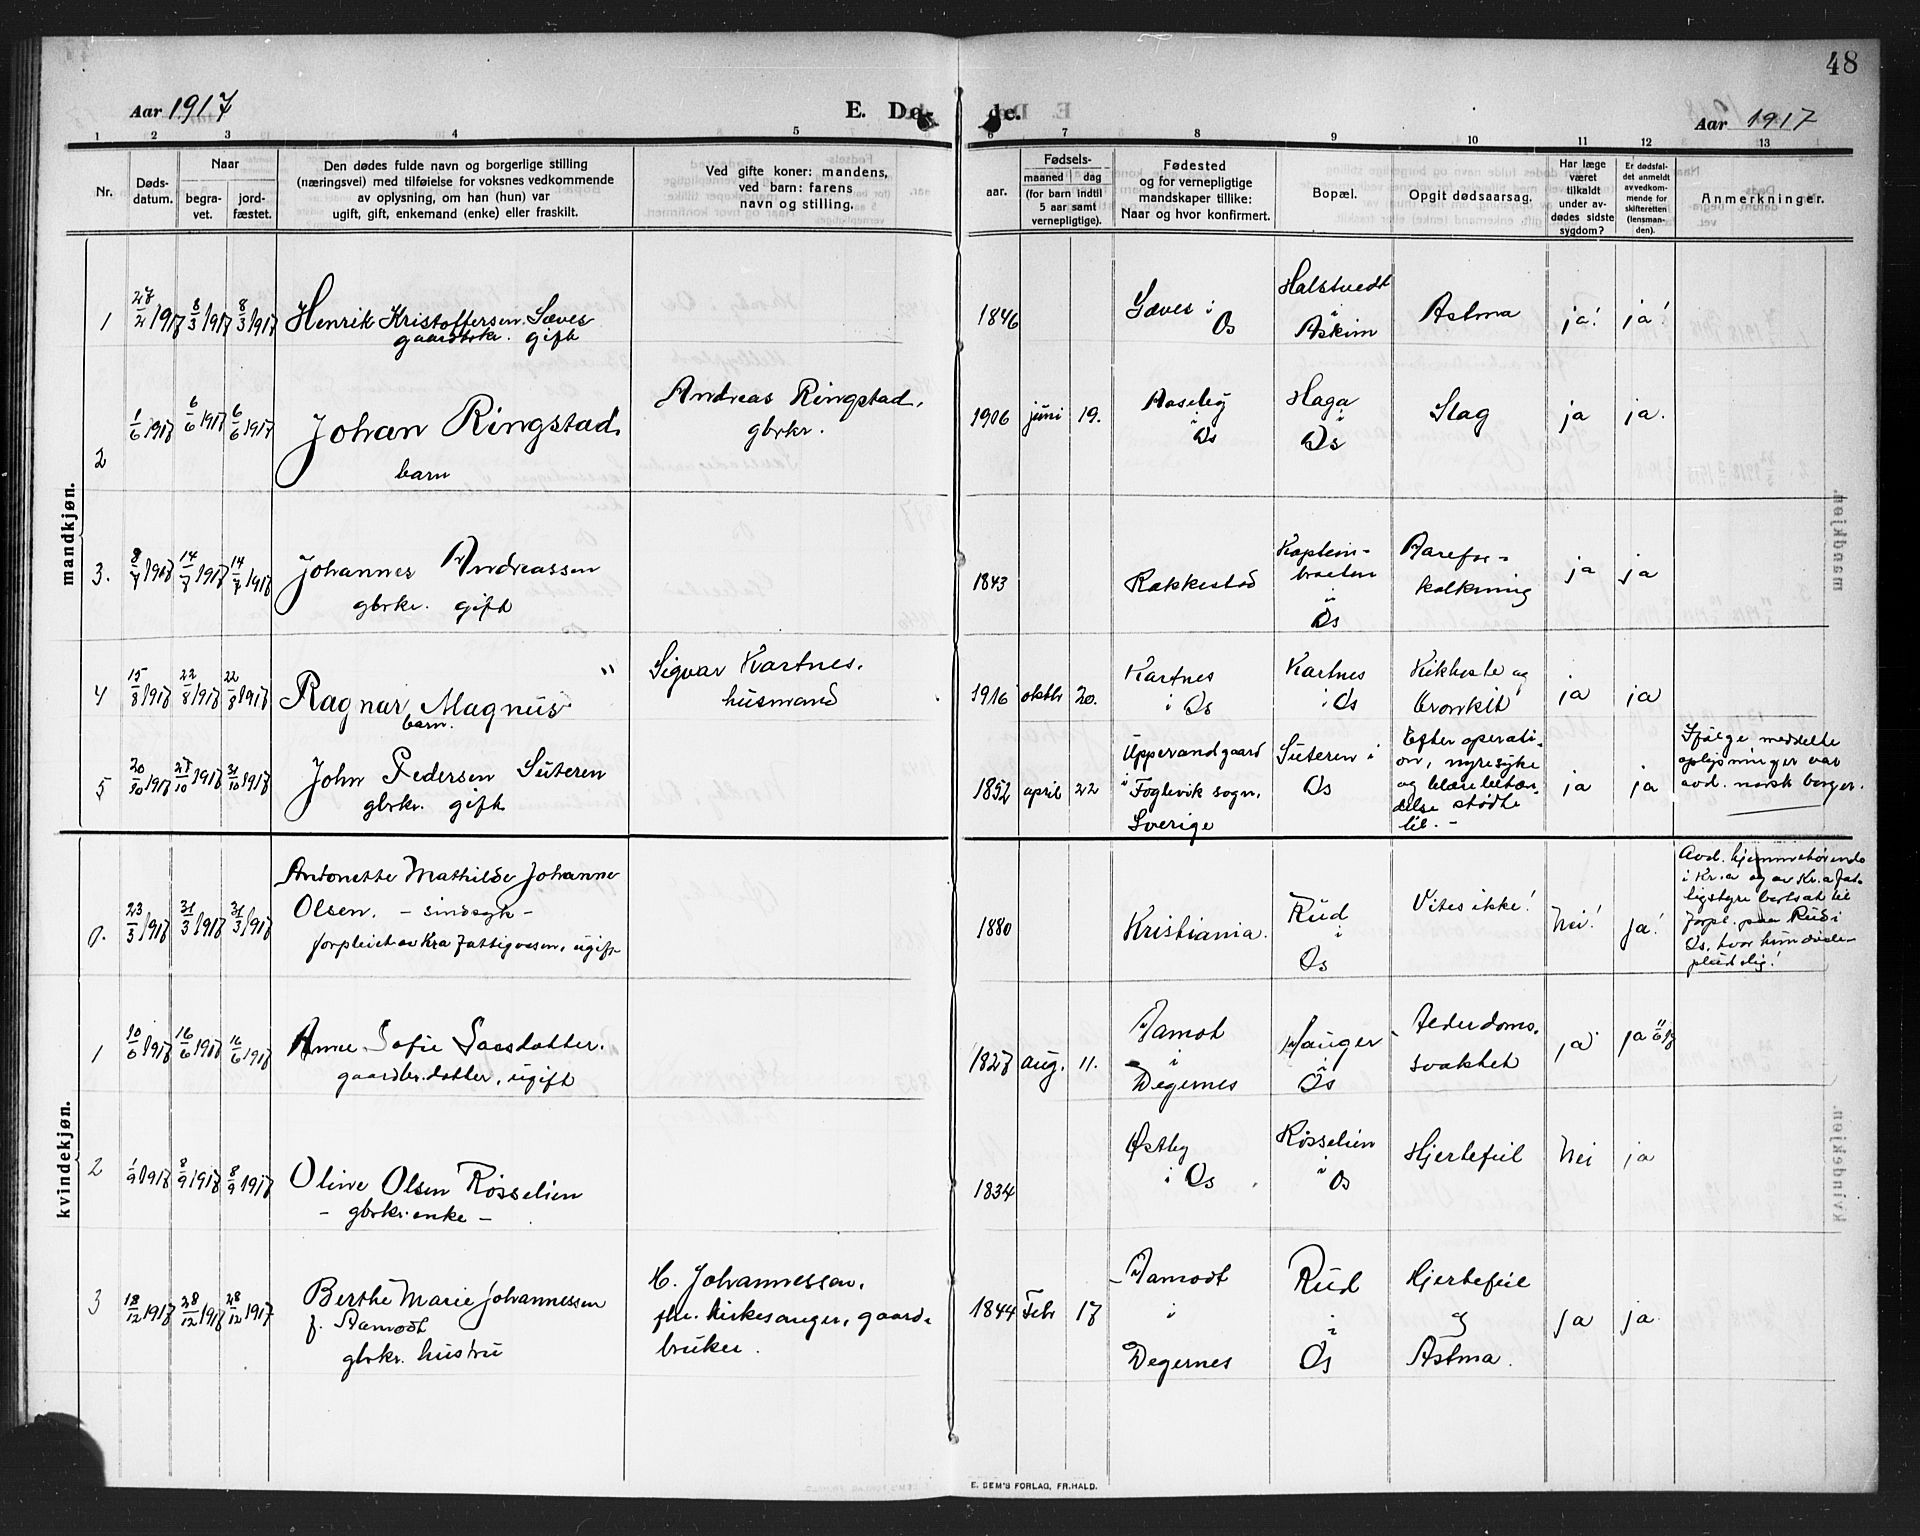 48
Aar 1917
E. Dø-
de.
Aar 1917
1 2 3 4 5 6 7 8 9 10 11 12 13
Nr.
Døds-
datum.
Naar
begra-
vet.
jord-
fæstet.
Den dødes fulde navn og borgerlige stilling
(næringsvei) med tilføielse for voksnes vedkommende
av oplysning, om han (hun) var
ugift, gift, enkemand (enke) eller fraskilt.
Ved gifte koner: mandens,
ved barn: farens
navn og stilling.
Fødsels-
aar.
maaned
dag
(for barn indtil
5 aar samt
vernepligtige).
Fødested
og for vernepligtige
mandskaper tillike:
Naar og hvor konfirmert.
Bopæl.
Opgit dødsaarsag.
Har læge
været
tilkaldt
under av-
dødes sidste
sygdom?
Er dødsfal-
det anmeldt
av vedkom-
mende for
skifteretten
(lensman-
den).
Anmerkninger.
mandkjøn.
1
27/2 1917
8/3 1917
8/3 1917
Henrik Kristoffersen Sæves
gaardbrkr. gift
1846
Sæves i
Os
Halstvedt
i
Askim
Astma
ja!
ja!
2
1/6 1917
6/6 1917
6/6 1917
Johan Ringstad.
barn
Andreas Ringstad,
gbrkr.
1906
juni
19.
Aaseby
i
Os
Haga
i
Os
Slag
ja
ja.
3.
8/7 1917
14/7 1917
14/7 1917
Johannes Andreassen
gbrkr. gift
1843
Rakkestad
Kaptein-
braaten
i
Os
Aarefor-
kalkning
ja
ja
4
15/8 1917
22/8 1917
22/8 1917
Ragnar Magnus "
barn.
Sigvar Kartnes.
husmand
1916
oktbr
20.
Kartnes
i Os
Kartnes
i Os
Kikhoste og
bronkit
ja
ja
5
20/10 1917
27/10 1917
31/10 1917
John Pedersen Suteren
gbrkr. gift
1852
april
22
Uppervandgaard
i Foglevik sogn,
Sverige
Suteren i
Os
Efter operati-
on, nyresyke
og blærebetæn-
delse stødte
til. -
ja
ja
Ifølge meddelte
oplysninger var
avd. norsk borger.
kvindekjøn.
0.
23/3 1917
31/3 1917
31/3 1917
Antonette Mathilde Johanne
Olsen. - sindsyk -
forpleiet av Kra Fattigvesen, ugift
1880
Kristiania.
Rud
i
Os
Vites ikke!
Nei!
ja!
Avd. hjemmehørende
i Kr.a og av Kr.a fat-
tigstyre bortsat til
forpl. paa Rud i
Os, hvor hun døde
pludslig!
1
10/6 1917
16/6 1917
16/6 1917
Anne Sofie Larsdatter.
gaardbr. datter, ugift
1827
aug.
11.
Aamot
i
Degernes
Hauger
i
Os
Alderdoms-
svakhet
ja
ja 11/6 17
2
1/9 1917
8/9 1917
8/9 1917
Oline Olsen Røsselien
- gbrkr. enke -
1834
Østby
i Os
Røsselien
i
Os
Hjertefeil
Nei
ja
3
18/12 1917
28/12 1917
28/12 1917
Berthe Marie Johannessen
f. Aamodt
gbrkr. hustru
H. Johannessen,
fhv. kirkesanger, gaard-
bruker.
1844
Febr
17
Aamodt
i
Degernes
Rud
i
Os
Hjertefeil
og
Astma.
ja
ja
E. SEM'S FORLAG, FR.HALD.